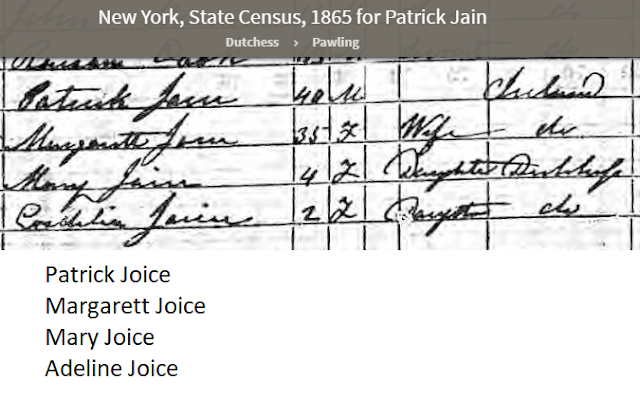 New York, State Census, 1865 for Patrick Jain
Dutchess › Pawling
Patrick Jain 40 M Ireland
Margarett Jain 35 F Wife do
Mary Jain 4 F Daughter
2 F do
Patrick Joice
Margarett Joice
Mary Joice
Adeline Joice